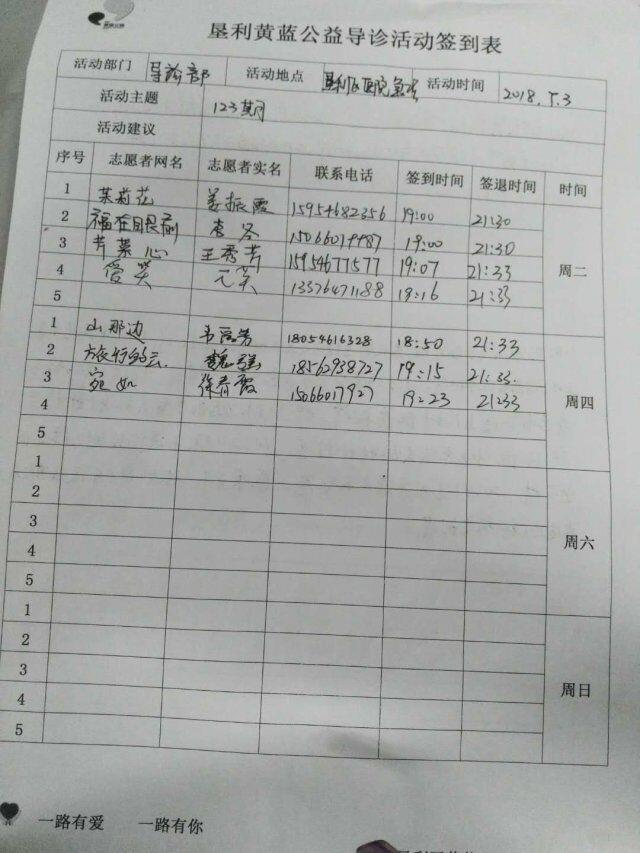 垦利黄蓝公益导诊活动签到表
活动部门 导诊部 活动地点 垦利区医院急诊 活动时间 2018.5.3
活动主题 123期
活动建议
序号 志愿者网名 志愿者实名 联系电话 签到时间 签退时间 时间
1 茉莉花 姜振霞 15954682356 19:00 21:30
2 福在眼前 15066019987 19:00 21:30
3 芹菜心 王秀芳 15954677577 19:07 21:33 周二
4 爱笑 13376471188 19:16 21:33
5
1 山那边 18054616328 18:50 21:33
2 旅行的云 魏 18562938727 19:15 21:33.
3 宛如 徐青霞 15066017927 19:23 21:33
4 周四
5
1
2
3
4 周六
5
1
2
3 周日
4
5
一路有爱 一路有你